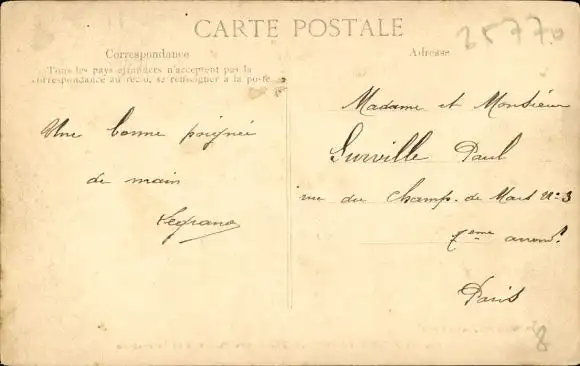 CARTE POSTALE
25770
Correspondance
Tous les pays étrangers n'acceptent pas la
correspondance au recto, se renseigner à la poste.
Une bonne poignée
de main
Legrand
Adresse
Madame et Monsieur
Surville Paul
rue du Champ-de Mars N° 3
7eme arrond.t
Paris
8